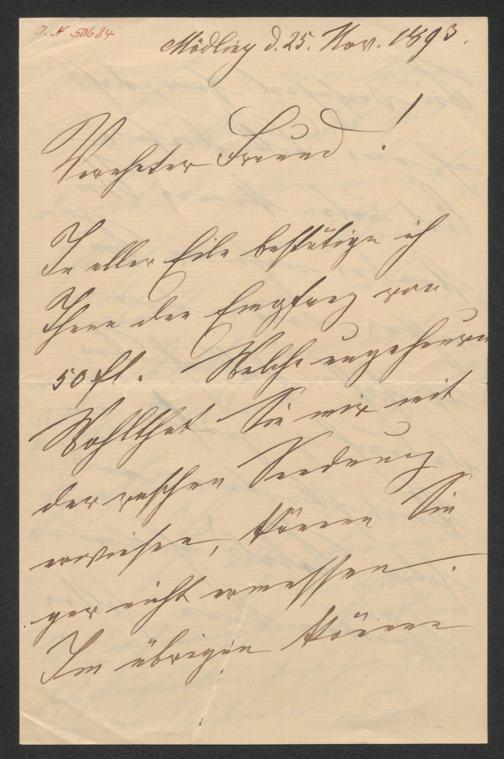 J. N 50684
Mödling d. 25. Nov. 1893.
Verehrter Freund!
In aller Eile bestätige ich
Ihnen den Empfang von
50 fl. Welche ungeheure
Wohlthat Sie mir mit
der raschen Sendung
erwiesen, können Sie
gar nicht ermessen.
Im übrigen können